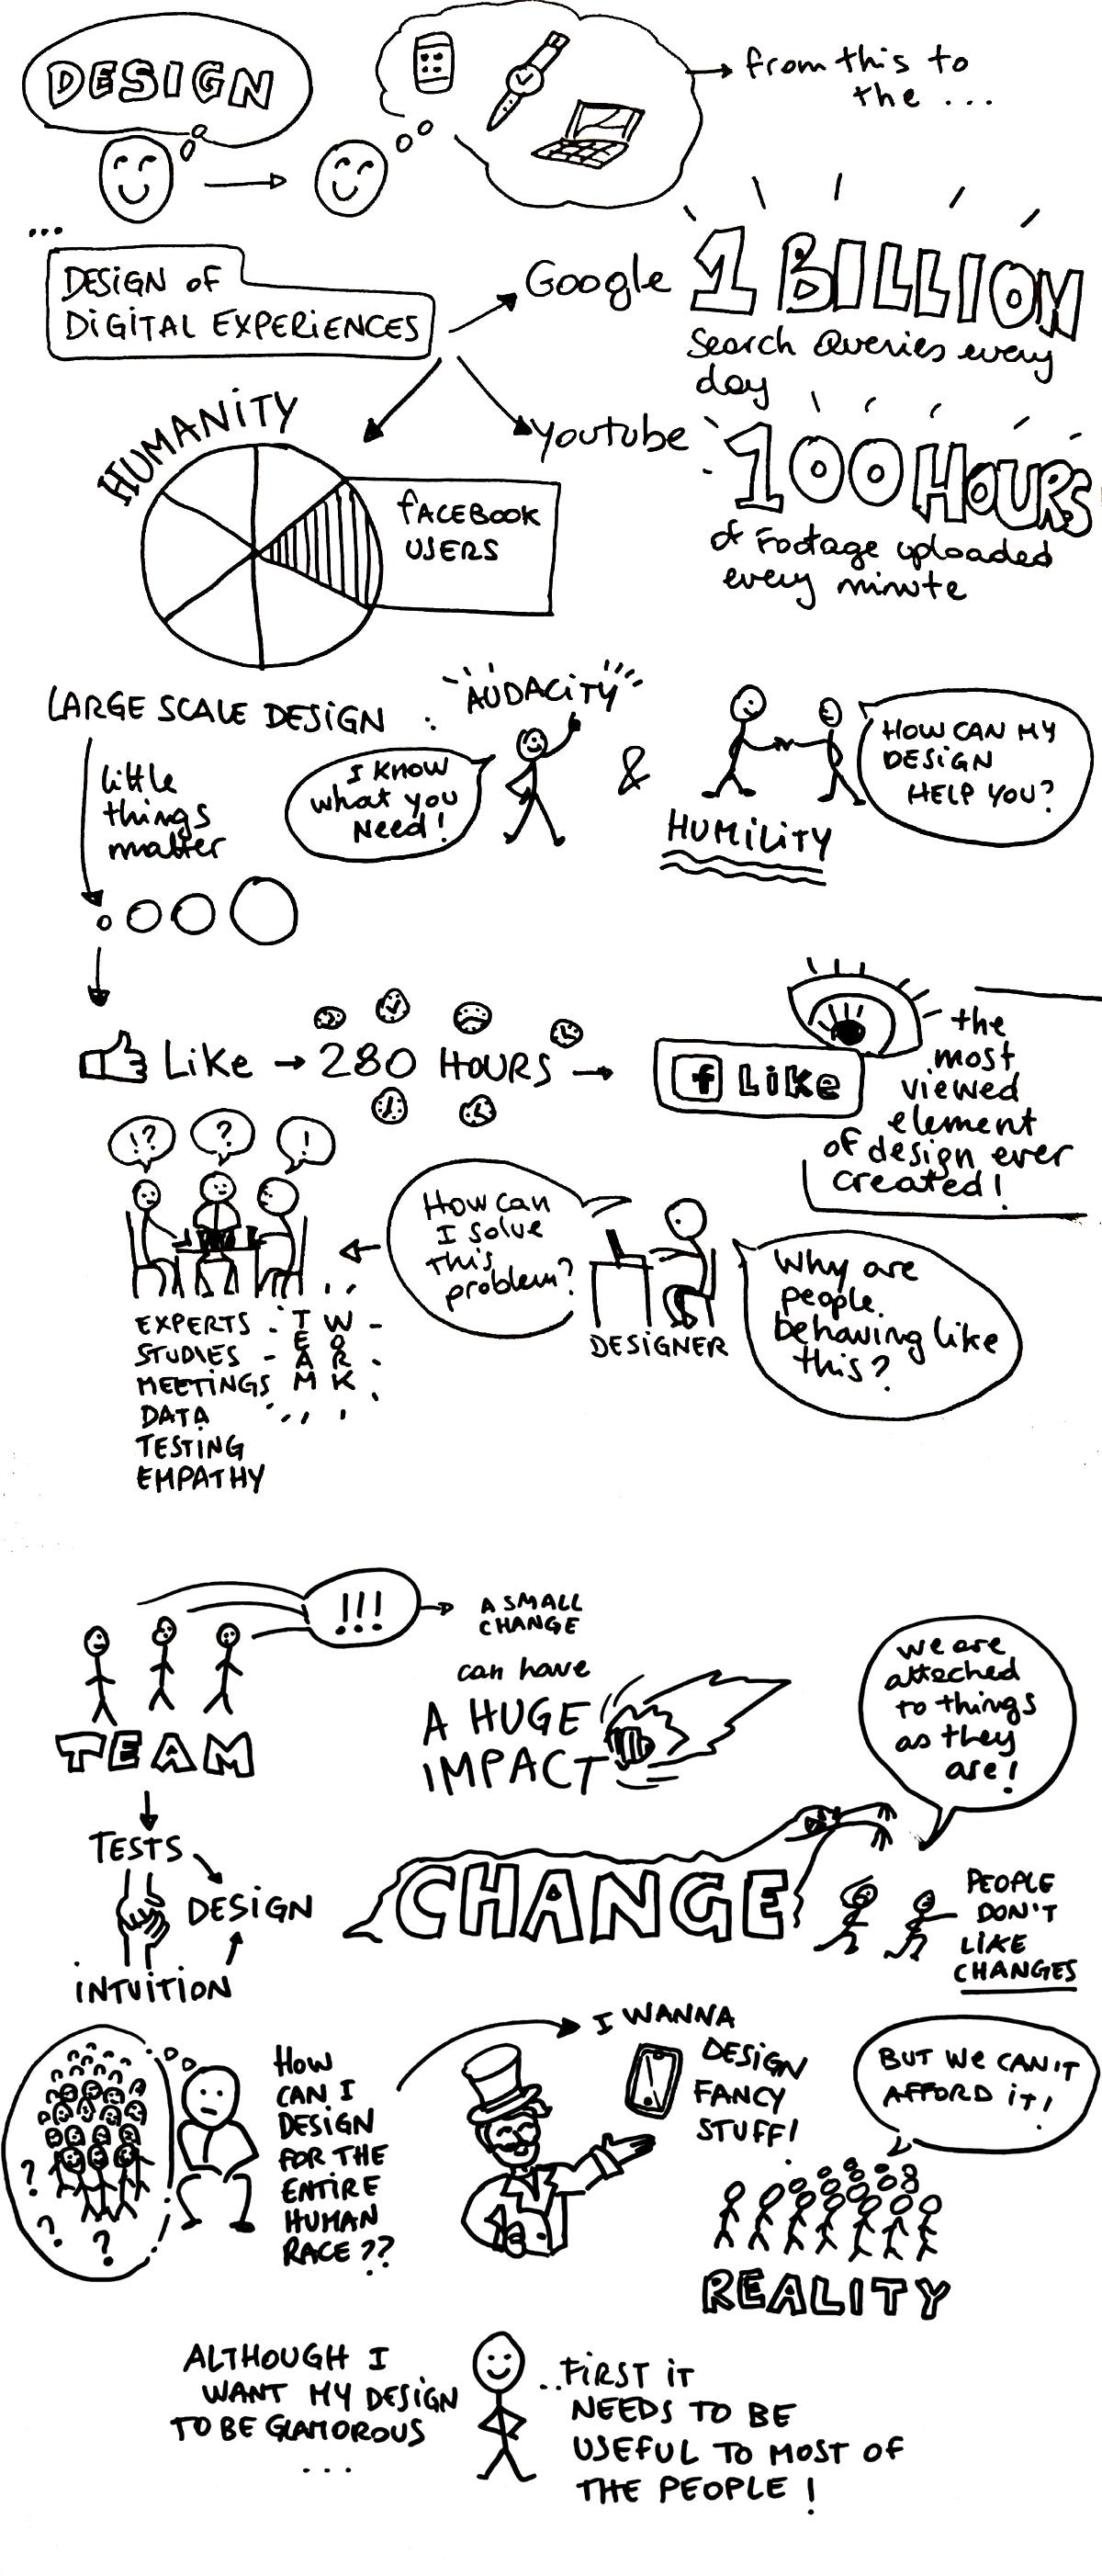 DESIGN
from this to
the ...
...
DESIGN OF
DIGITAL EXPERIENCES
Google
1 BILLION
Search Queries every
day
Youtube
100 HOURS
of Footage uploaded
every minute
HUMANITY
FACEBOOK
USERS
LARGE SCALE DESIGN :
AUDACITY
I KNOW
what you
Need!
&
HUMILITY
HOW CAN MY
DESIGN
HELP YOU?
little
things
matter
Like → 280 HOURS →
f Like
the
most
viewed
element
of design ever
created!
!?
?
!
How can
I solve
this
problem?
DESIGNER
Why are
people
behaving like
this?
EXPERTS
STUDIES
MEETINGS
DATA
TESTING
EMPATHY
TEAM
WORK
!!!
A SMALL
CHANGE
can have
A HUGE
IMPACT
TEAM
TESTS
DESIGN
INTUITION
CHANGE
we are
attached
to things
as they
are!
PEOPLE
DON'T
LIKE
CHANGES
?
?
?
HOW
CAN I
DESIGN
FOR THE
ENTIRE
HUMAN
RACE??
I WANNA
DESIGN
FANCY
STUFF!
BUT WE CAN'T
AFFORD IT!
REALITY
ALTHOUGH I
WANT MY DESIGN
TO BE GLAMOROUS
...
..FIRST IT
NEEDS TO BE
USEFUL TO MOST OF
THE PEOPLE!